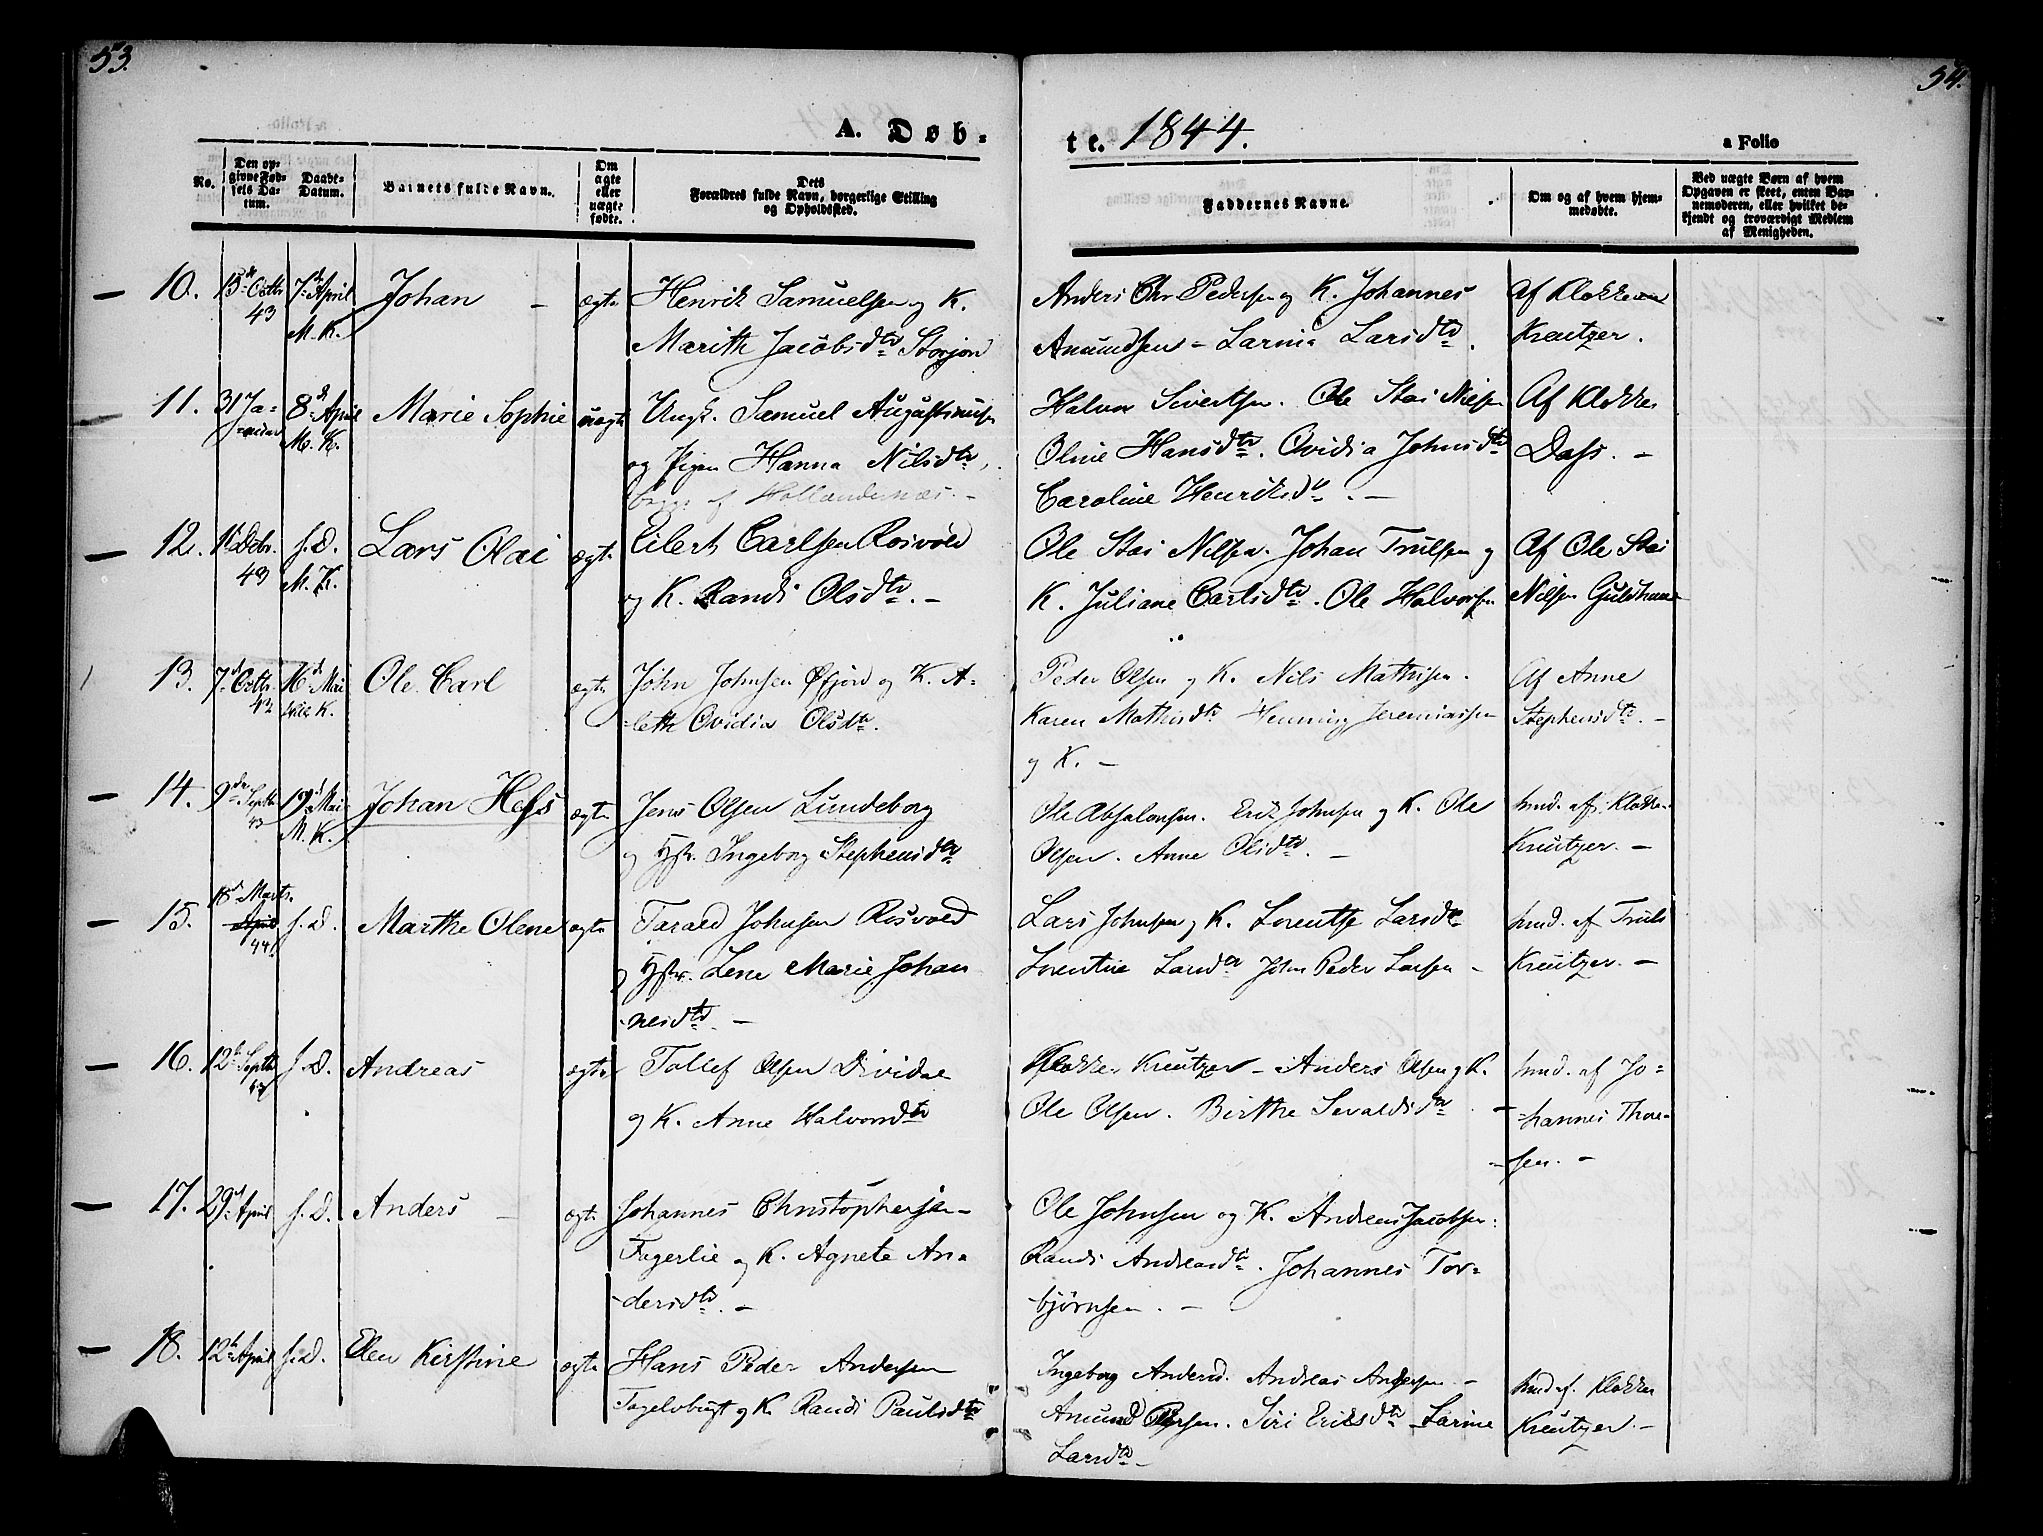 53.
54.
A. Døb-
te. 1844.
a Folio
No.
Den op-
givne Fød-
sels Da-
tum.
Daabs-
Datum.
Barnets fulde Navn.
Om
ægte
eller
uægte
fødte.
Dets
Forældres fulde Navn, borgerlige Stilling
og Opholdssted.
Faddernes Navne.
Om og af hvem hjem-
medøbte.
Ved uægte Børn af hvem
Opgaven er skeet, enten Bar-
nemoderen, eller hvilket be-
kjendt og troværdigt Medlem
af Menigheden.
10. 15de Octbr 43 7de April M. K. Johan - ægte
Henrik Samuelsen og K.
Marith Jacobsdtr Storjord
Anders Chr Pedersen og K. Johannes
Amundsen - Larina Larsdtr.
Af Klokker
Kreutzer.
11. 31 Ja-
nuar 8de April M. K. Marie Sophie uægte
Ungk. Samuel Augustinusen
og Pigen Hanna Nilsdtr,
begge af Hollændernæs. -
Halvor Sivertsen. Ole Stai Nilsen
Oline Hansdtr. Ovidia Johnsdtr
Caroline Henriksdtr. -
Af Klokker
Dass. -
12. Decbr. 43 s. D. M. K. Lars Olai ægte
Eilert Carlsen Rosvold
og K. Randi Olsdtr. -
Ole Stai Nilsen. Johan Trulsen og
K. Juliane Carlsdtr. Ole Halvorsen
Af Ole Stai
Nilsen
13. 7de Octbr. 16de Mai K. Ole Carl ægte
John Johnsen Øfjord og K. A-
leth Ovidia Olsdtr.
Peder Olsen og K. Nils Mathisen.
Karen Mathisdtr Henning Jeremiassen
og K. -
Af Anne
Stephensdtr. -
14. 9de Septbr 43 19de Mai M. K. Johan Hess ægte
Jens Olsen Lundeborg
og Hstr. Ingeborg Stephensdtr
Ole Absalonsen. Erik Johnsen og K. Ole
Olsen. Anne Olsdtr. -
hmd. af Klokker
Kreutzer. -
15. 18de Marts.
April
44 s. D. Marthe Olene ægte
Tarald Johnsen Rosvold
og Hstr. Lene Marie Johan
nesdtr. -
Lars Johnsen og K. Lorentse Larsdtr
Lorentine Larsdtr John Peder Larsen -
hmd. af Truls
Kreutzer. -
16. 12te Septbr 43 s. D. Andreas ægte
Tollef Olsen Dividal
og K. Anne Halvorsdtr
Klokker Kreutzer - Anders Olsen og K.
Ole Olsen. Birthe Sevaldsdtr. -
hmd. af Jo-
hannes Thore-
sen. -
17. 29de April s. D. Anders - ægte
Johannes Christophersen -
Fagerlie og K. Agnete An-
dersdtr. -
Ole Johnsen og K. Andreas Jacobsen.
Randi Andreasdtr. Johannes Tor-
bjørnsen. -
18. 12te April s. D. Elen Kirstine ægte
Hans Peder Andersen
og K. Randi Paulsdtr
Ingeborg Andersd. Andreas Andersen. -
Amund Olsen. Siri Eriksdtr Larine
Larsdtr -
hmd af. Klokker
Kreutzer. -